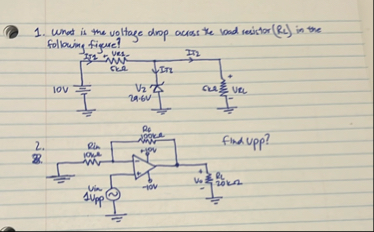 1. What is the voltage drop across the load resistor (RL) in the
following figure?
IT1 + VR1 -
5kΩ
IT2
10V
VZ
5kΩ
VRL
2.
Rin
10kΩ
100kΩ
+10V
-10V
Find Vpp?
Vin
1Vpp
Vo
RL
20kΩ